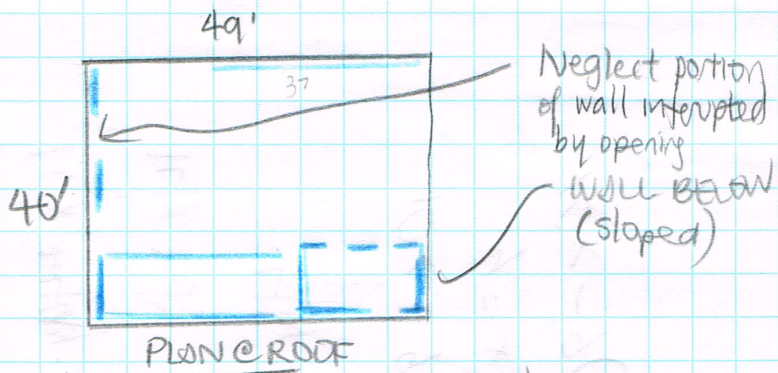 49'
37
Neglect portion
of wall interupted
by opening
40'
WALL BELOW
(sloped)
PLAN @ ROOF